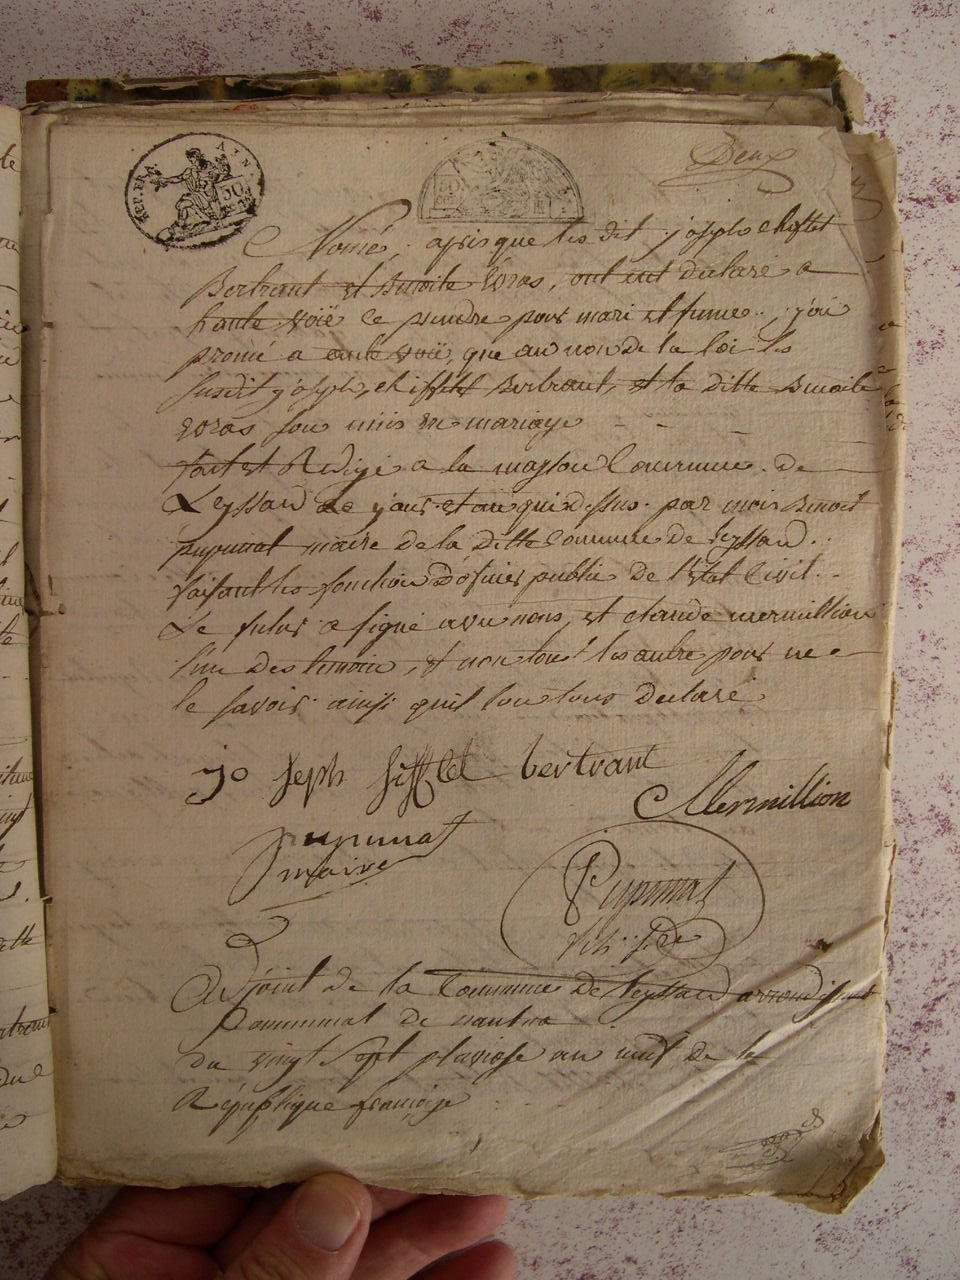 REP. FRA. AIN.
50
Deux
Nomé, apris que les dit joseph chifflet
Bertrant et Benoite Goras, ont eut declaré a
haute voië ce prendre pour mari et fame. j'ai
promé a aute voië, que au non de la loi les
susdit joseph, chifflet Bertrant, et la ditte Benoite
goras son unis en mariage
fait et Redigé a la maison Commune de
Leyssard Le jour et an quidessus par moi Benoit
pupunat maire de la ditte Commune de leyssard
faisant les fonction d'ofisier public de l'Etat Civil.
Le futur a signé avec nous, et claude mermillion
l'un des temoin, et non tous les autre pour ne
le savoir ainsi qu'il son tous declaré
jo seph sifflet bertrant
CMermillion
pupunat
maire
Pupunat
Adjoint de la Commune de leyssard arrondissement
Communal de nantua
du vingt sept pluviose an neuf de la
République française